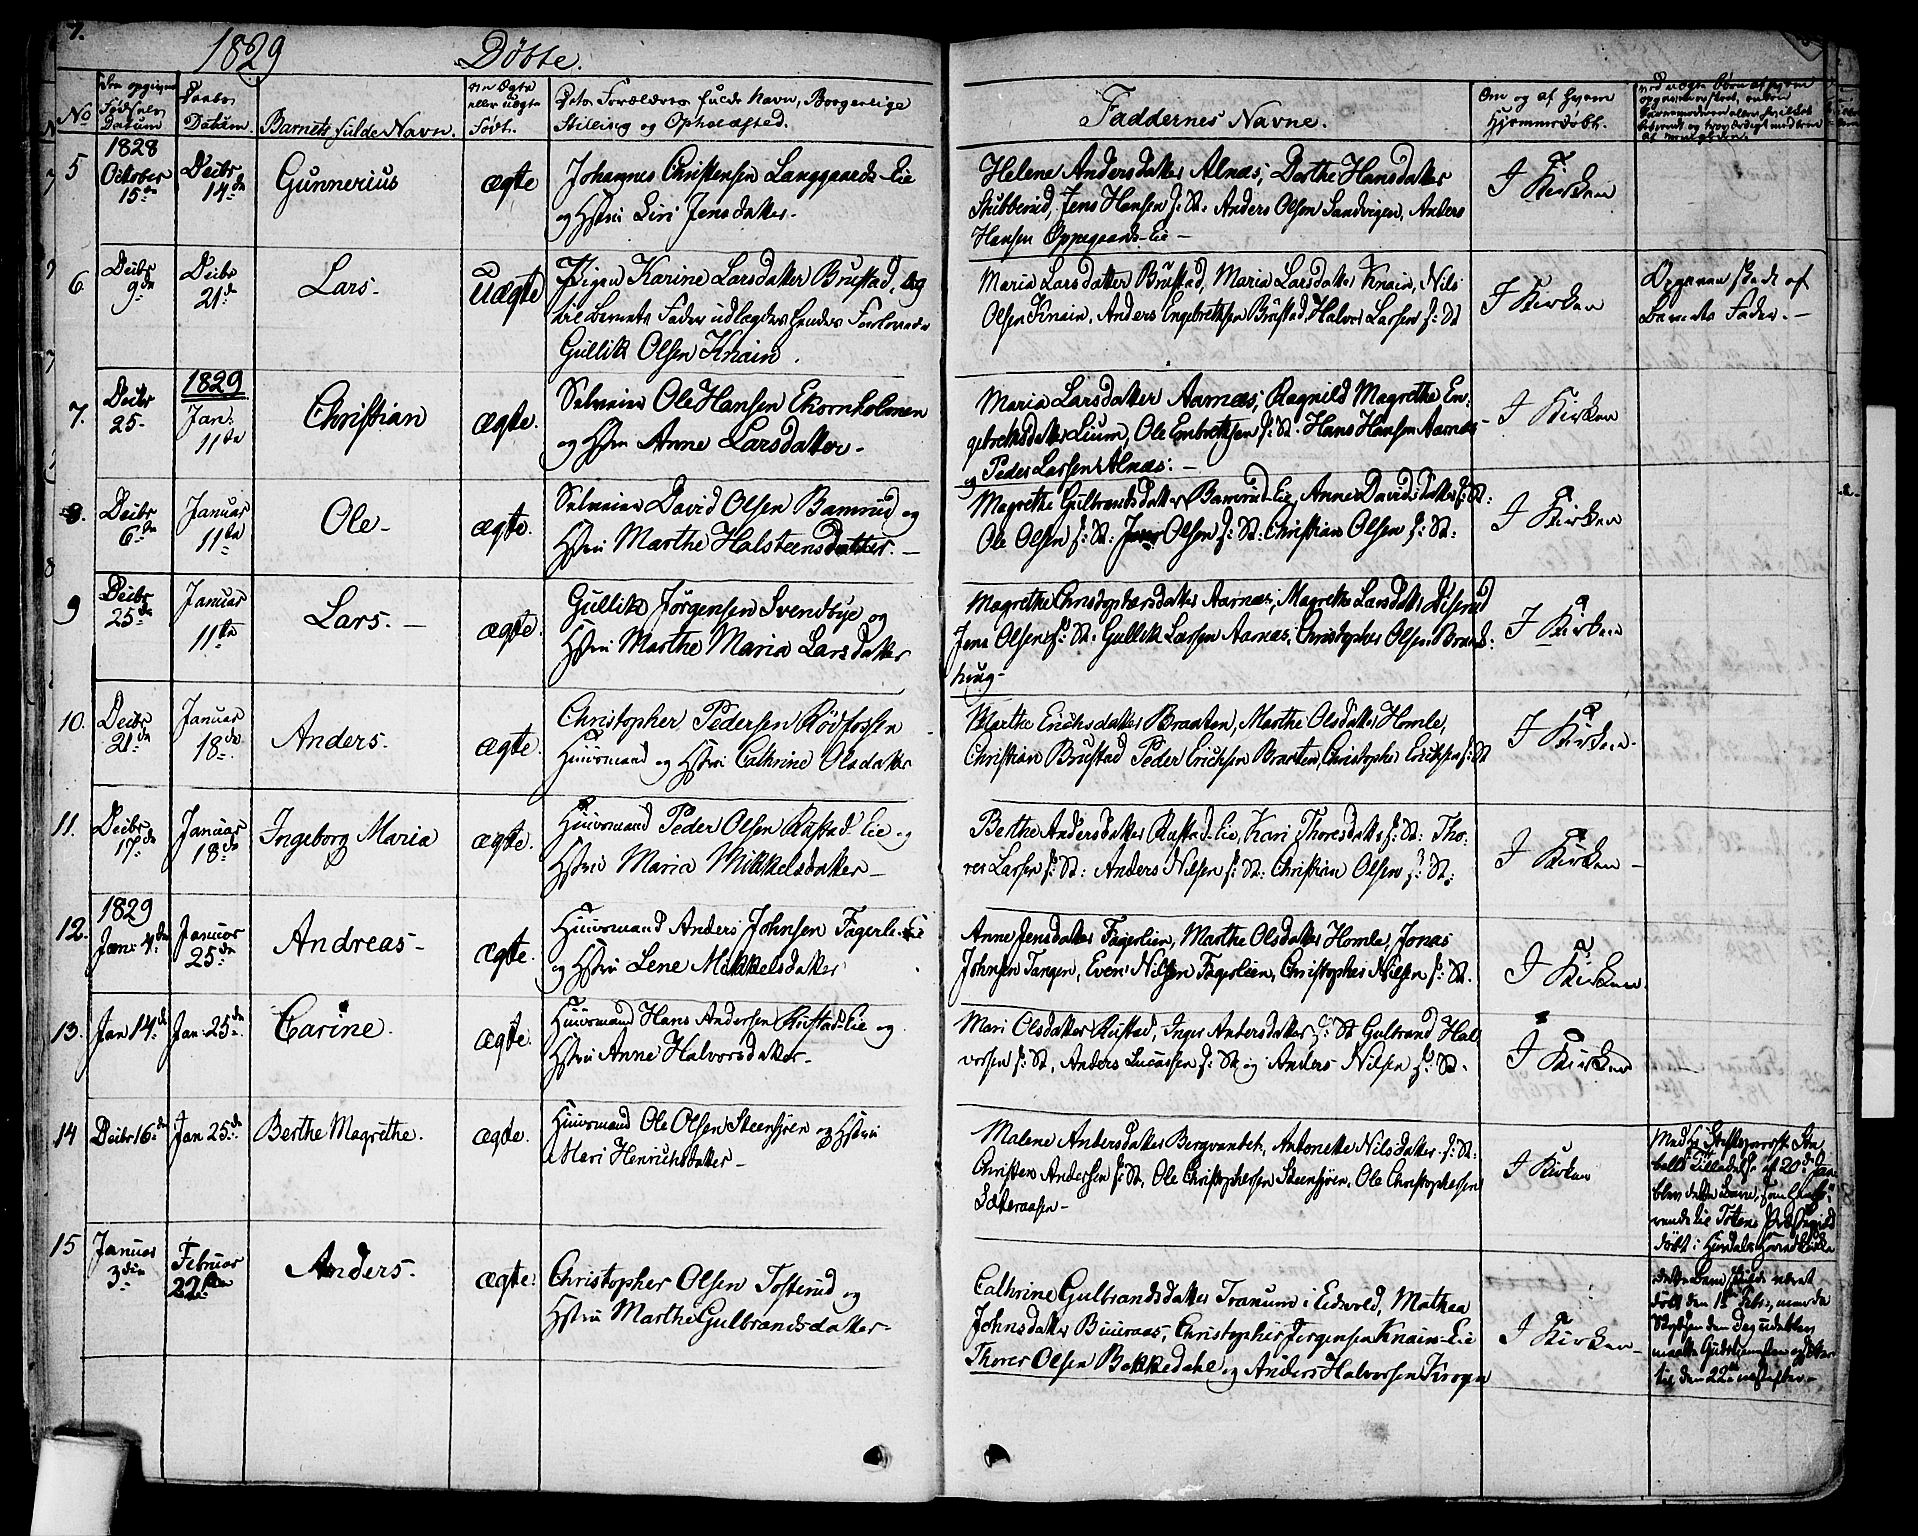 7.
1829 Döbte.
No
Den opgivne Födsels Datum
Daabs Datum.
Barnets fulde Navn.
Om Ægte eller uægte Födt.
Dets Forældres fulde Navn, Borgerlige Stilling og Opholdsted.
Faddernes Navne.
Om og af hvem Hjemmedöbt.
5
1828
October
15de
Decbr
14de
Gunnerius
ægte
Johannes Christensen Langgaards-Eie
og Hstru Siri Jensdatter.
Helene Andersdatter Alnæs, Dorthe Hansdatter
Stubberud, Jens Hansen s: St: Anders Olsen Sandvigen, Anders
Hansen Oppegaards-Eie –
I Kirken
6
Decbr
9de
Decbr
21de
Lars-
Uægte
Pigen Karine Larsdatter Brustad, og
til Barnets Fader udlægdes hendes Forlovede
Gullik Olsen Knain.
Maria Larsdatter Brustad, Maria Larsdatter Knain, Nils
Olsen Knain, Anders Engebrethsen Brustad, Halvor Larsen s: St
I Kirken
Opgaven skede af
Barnets Fader. –
7.
Decbr
25-
1829
Jan:
11te
Christian
ægte.
Selveier Ole Hansen Ekornholmen
og Hstru Anne Larsdatter-
Maria Larsdatter Aarnæs, Ragnild Magrethe En-
gebrethsdatter Lium, Ole Embrethsen s: St. Hans Hansen Aarnæs-
og Peder Larsen Alnæs. –
I Kirken
8.
Decbr
6de
Januar
11te
Ole-
ægte.
Selveier David Olsen Bamrud og
Hstru Marthe Halsteensdatter. –
Magrethe Gulbrandsdatter Bamrud-Eie, Anne Davidsdatter s: St:
Ole Olsen s: St: Jens Olsen s: St: Christian Olsen s: St:
I Kirken
9
Decbr
25de
Januar
11te
Lars. –
ægte.
Gullik Jörgensen Svendbye og
Hstru Marthe Maria Larsdatter
Magrethe Christophersdatter Aarnæs, Magrethe Larsdatter
Jens Olsen s: St: Gullik Larsen Aarnæs, Christopher Olsen Brand-
houg-
I Kirken
10.
Decbr
21de
Januar
18de
Anders.
ægte.
Christopher Pedersen Rödfossen
Huusmand og Hstru Cathrine Olsdatter
Marthe Erichsdatter Braaten, Marthe Olsdatter Homle,
Christian Brustad Peder Erichsen Braaten, Christopher Erichsen s: St
I Kirken.
11.
Decbr
17de
Januar
18de
Ingeborg Maria
ægte.
Huusmand Peder Olsen Rustad-Eie og
Hstru Maria Mikkelsdatter –
Berthe Andersdatter Rustad-Eie, Kari Thoresdatter s: St: Tho-
res Larsen s: St: Anders Nilsen s: St: Christian Olsen s: St:
I Kirken –
12.
1829
Jan: 4de
Januar
25de
Andreas-
ægte.
Huusmand Anders Johnsen Fagerli-Eie
og Hstru Lene Mikkelsdatter
Anne Jensdatter Fagerlien, Marthe Olsdatter Homle, Jonas
Johnsen Tangen, Even Nilsen Fagerlien, Christopher Nilsen s: St.
I Kirken.
13.
Jan 14de
Jan 25de
Carine.
ægte.
Huusmand Hans Andersen Rustad-Eie og
Hstru Anne Halvorsdatter-
Mari Olsdatter Rustad, Inger Andersdatter s: St Gulbrand Hal
vorsen s: St. Anders Lucassen s: St. og Anders Nilsen s: St.
I Kirken
14
Decbr 16de
Jan 25de
Berthe Magrethe.
ægte.
Huusmand Ole Olsen Steensjoen og Hstru
Mari Henrichsdatter –
Malene Andersdatter Bergvandet, Antonette Nilsdatter s: St:
Christen Andersen s: St, Ole Christophersen Steensjoen, Ole Christophersen
Sæteraasen-
I Kirken
15
Januar
3die
Februar
22de
Anders.
ægte.
Christopher Olsen Tosterud og
Hstru Marthe Gulbrandsdatter-
Cathrine Gulbrandsdatter Tranum i Eidsvold, Mathea
Johnsdatter Buuraas, Christopher Jörgensen Knain-Eie
Thorer Olsen Bakkedahl og Anders Halvorsen Krogen
I Kirken-
dette Barn skulde været
döbt den 15de Febr, men da
den Dag udeblev,
til den 22de